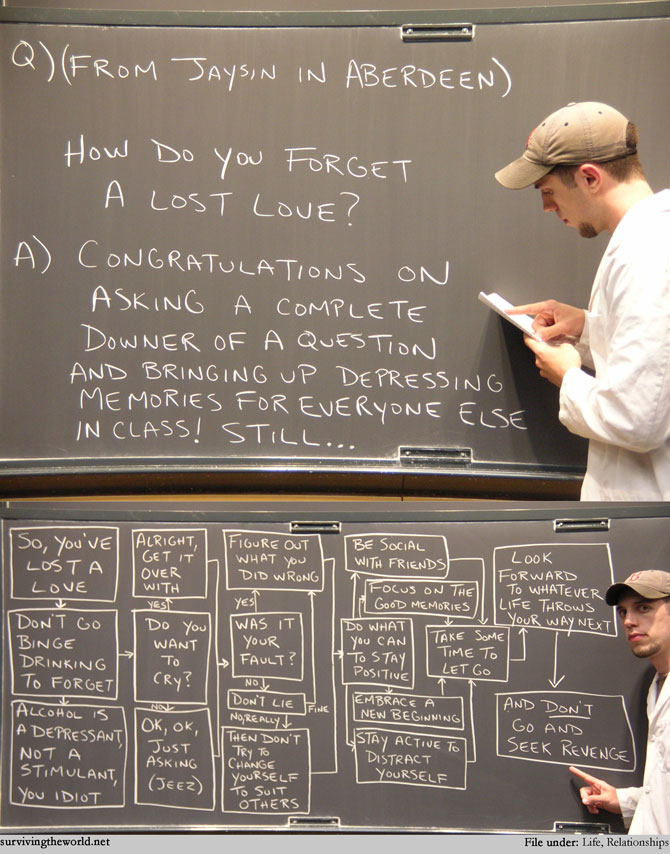 Q) (FROM JAYSIN IN ABERDEEN)
HOW DO YOU FORGET
A LOST LOVE?
A) CONGRATULATIONS ON
ASKING A COMPLETE
DOWNER OF A QUESTION
AND BRINGING UP DEPRESSING
MEMORIES FOR EVERYONE ELSE
IN CLASS! STILL...
SO, YOU'VE
LOST A
LOVE
DON'T GO
BINGE
DRINKING
TO FORGET
ALCOHOL IS
A DEPRESSANT,
NOT A
STIMULANT,
YOU IDIOT
ALRIGHT,
GET IT
OVER
WITH
YES
DO YOU
WANT
TO
CRY?
NO
OK, OK,
JUST
ASKING
(JEEZ)
FIGURE OUT
WHAT YOU
DID WRONG
YES
WAS IT
YOUR
FAULT?
NO
DON'T LIE
NO, REALLY
FINE
THEN DON'T
TRY TO
CHANGE
YOURSELF
TO SUIT
OTHERS
BE SOCIAL
WITH FRIENDS
FOCUS ON THE
GOOD MEMORIES
DO WHAT
YOU CAN
TO STAY
POSITIVE
EMBRACE A
NEW BEGINNING
STAY ACTIVE TO
DISTRACT
YOURSELF
TAKE SOME
TIME TO
LET GO
LOOK
FORWARD
TO WHATEVER
LIFE THROWS
YOUR WAY NEXT
AND DON'T
GO AND
SEEK REVENGE
survivingtheworld.net
File under: Life, Relationships